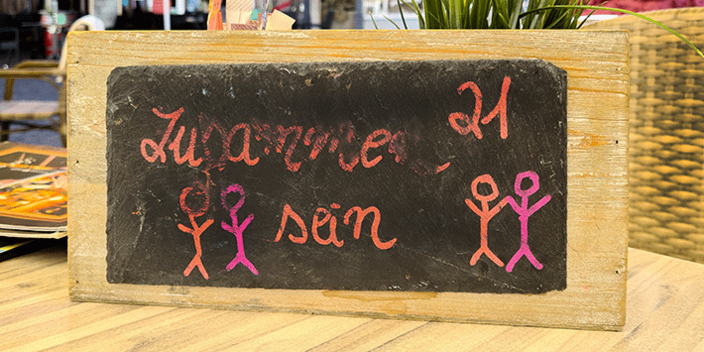 Zusammen 21
sein